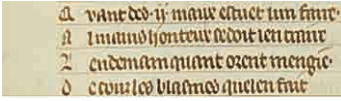 A vant des .ij. maux estuet lun faire.
A l mains honteux se doit len traire
A l endemain quant orent mengie.
D e touz les blasmes quel en fait